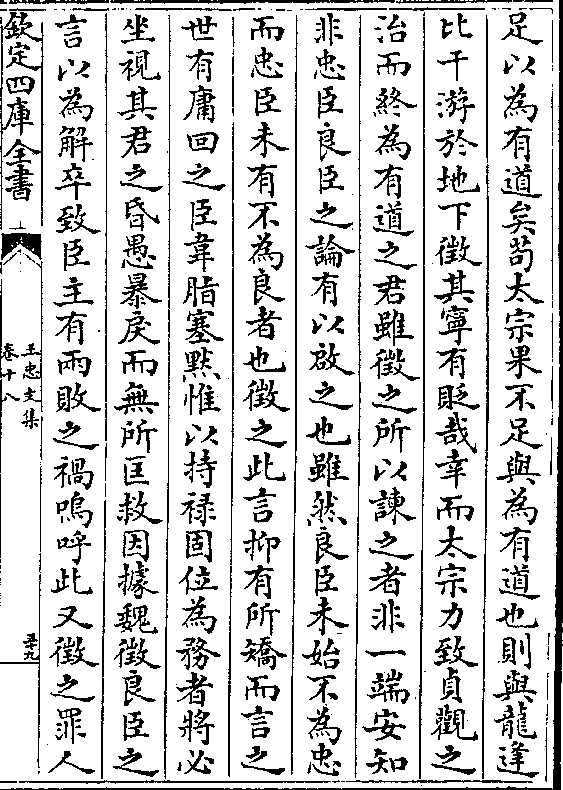 足以為有道矣苟太宗果不足與為有道也則與龍逢
比干游於地下徵其寧有貶哉幸而太宗力致貞觀之
治而終為有道之君雖徵之所以諫之者非一端安知
非忠臣良臣之論有以啟之也雖然良臣未始不為忠
而忠臣未有不為良者也徵之此言抑有所矯而言之
世有庸回之臣韋脂塞黙惟以持禄固位為務者將必
坐視其君之昏愚暴戾而無所匡救因據魏徵良臣之
言以為解卒致臣主有兩敗之禍嗚呼此又徵之罪人
欽定四庫全書
王忠文集
卷十八
五九